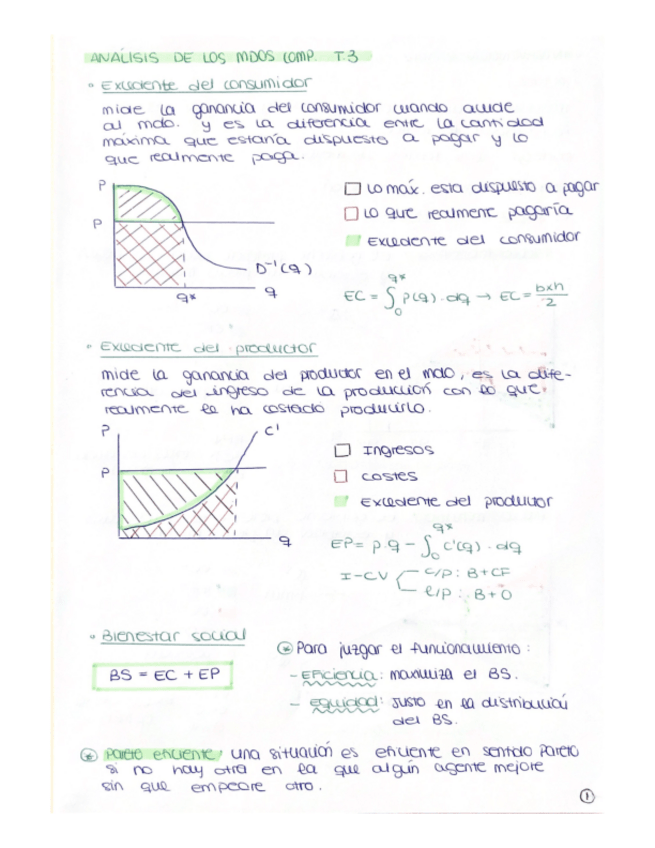 ANÁLISIS DE LOS MDOS COMP. T.3
Excedente del consumidor
mide la ganancia del consumidor cuando acude
al mdo. y es la diferencia entre la cantidad
máxima que estaría dispuesto a pagar y lo
que realmente paga.
P
P
D⁻¹(q)
q*
q
Lo máx. esta dispuesto a pagar
Lo que realmente pagaría
Excedente del consumidor
EC = ∫₀^q* p(q) · dq → EC = bxh/2
Excedente del productor
mide la ganancia del productor en el mdo, es la dife-
rencia del ingreso de la producción con lo que
realmente le ha costado producirlo.
P
C'
P
q
Ingresos
costes
Excedente del productor
EP = p·q − ∫₀^q* c'(q) · dq
I-CV
c/p: B+CF
l/p: B+0
Bienestar social
BS = EC + EP
* Para juzgar el funcionamiento:
- Eficiencia: maximiza el BS.
- equidad: Justo en la distribución
del BS.
* Pareto eficiente, una situación es eficiente en sentido Pareto
si no hay otra en la que algún agente mejore
sin que empeore otro.
1